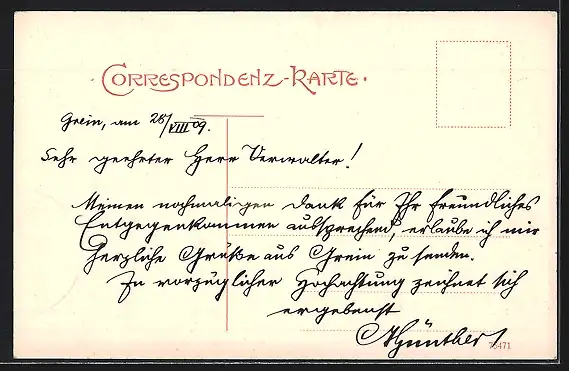 CORRESPONDENZ-KARTE.
Grein, am 28/VIII 09.
Sehr geehrter Herr Verwalter!
Meinen nochmaligen Dank für Ihr freundliches
Entgegenkommen aussprechend, erlaube ich mir
herzliche Grüße aus Grein zu senden.
In vorzüglicher Hochachtung zeichnet sich
ergebenst
Günther
75471